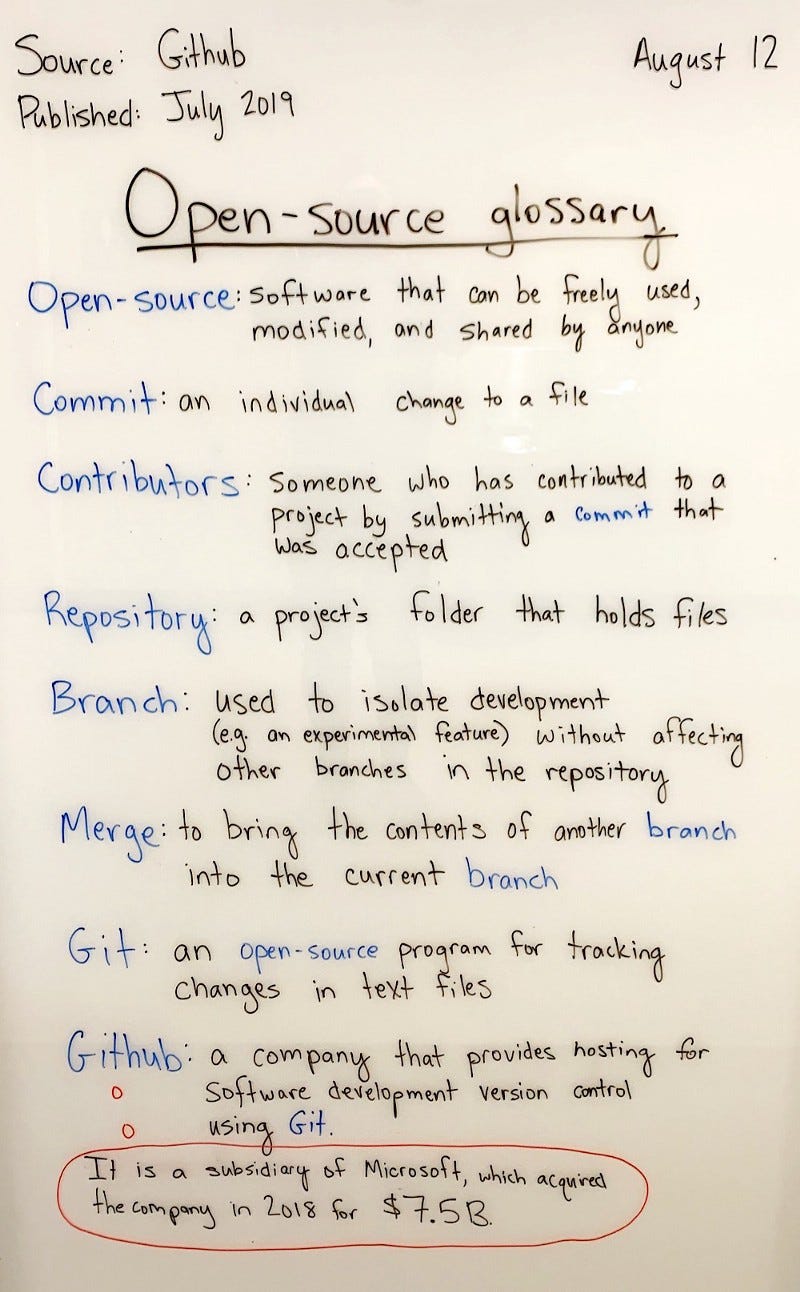 Source: Github
August 12
Published: July 2019
Open-source glossary
Open-source: software that can be freely used,
modified, and shared by anyone
Commit: an individual change to a file
Contributors: someone who has contributed to a
project by submitting a commit that
was accepted
Repository: a project's folder that holds files
Branch: used to isolate development
(e.g. an experimental feature) without affecting
other branches in the repository
Merge: to bring the contents of another branch
into the current branch
Git: an open-source program for tracking
changes in text files
Github: a company that provides hosting for
software development version control
using Git.
It is a subsidiary of Microsoft, which acquired
the company in 2018 for $7.5B.